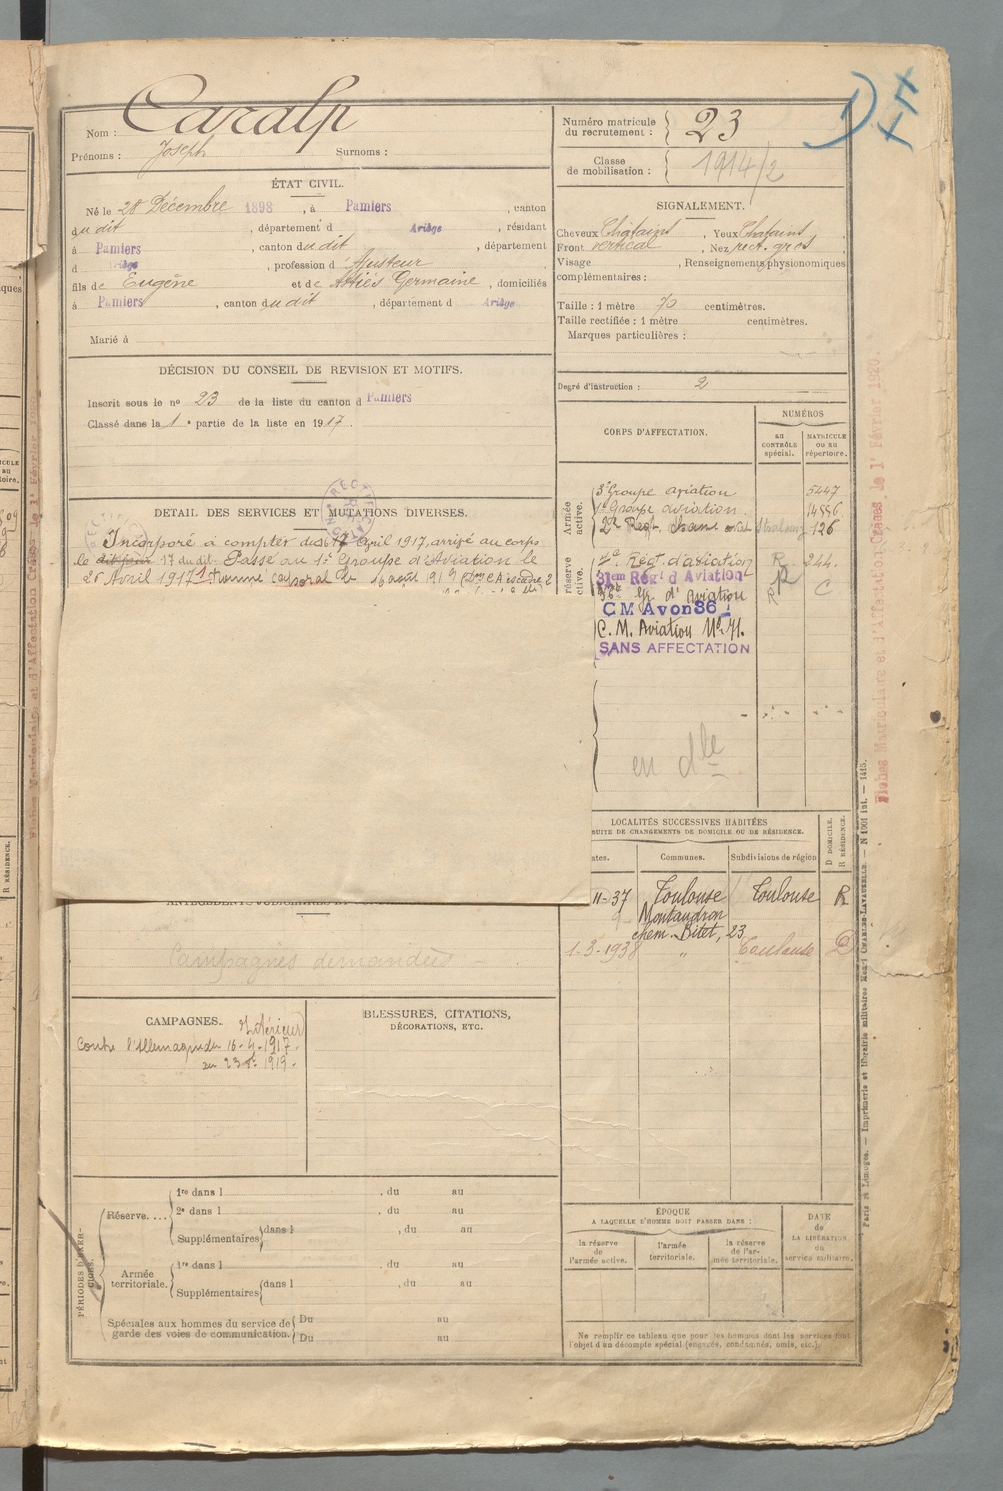 Nom : Caralp
Prénoms : Joseph Surnoms :
ÉTAT CIVIL.
Né le 28 Décembre 1898, à Pamiers, canton
dudit, département d Ariège, résidant
à Pamiers, canton dudit, département
d Ariège, profession d'Ajusteur
fils de Eugène et de Attiés Germaine, domiciliés
à Pamiers, canton dudit, département d Ariège
Marié à
DÉCISION DU CONSEIL DE REVISION ET MOTIFS.
Inscrit sous le nº 23 de la liste du canton d Pamiers
Classé dans la 1e partie de la liste en 1917.
DETAIL DES SERVICES ET MUTATIONS DIVERSES.
Incorporé à compter du 16 Avril 1917, arrivé au corps
le dit jour 17 du dit. Passé au 1er Groupe d'Aviation le
Avril 1917 caporal le 16 août 1919
ANTÉCÉDENTS JUDICIAIRES ET
Campagnes demandées
CAMPAGNES. Intérieur
Contre l'Allemagne du 16-4-1917
au 23 1919.
BLESSURES, CITATIONS,
DÉCORATIONS, ETC.
PÉRIODES D'EXERCICES.
Réserve....
1re dans l , du au
2e dans l , du au
Supplémentaires dans l , du au
Armée territoriale.
1re dans l , du au
Supplémentaires dans l , du au
Spéciales aux hommes du service de garde des voies de communication.
Du au
Du au
Numéro matricule du recrutement : 23
Classe de mobilisation : 1914/2
SIGNALEMENT.
Cheveux Châtains, Yeux Châtains,
Front vertical, Nez rect. gros
Visage , Renseignements physionomiques
complémentaires :
Taille : 1 mètre 70 centimètres.
Taille rectifiée : 1 mètre centimètres.
Marques particulières :
Degré d'instruction : 2
CORPS D'AFFECTATION.
NUMÉROS
au CONTRÔLE spécial.
MATRICULE ou au répertoire.
Armée active.
3e Groupe aviation 5447
1er Groupe aviation. 14886
2e Regt. 126
réserve
Régt. d'aviation R 244.
31em Régt d Aviation R
d'Aviation R C
CM Avon 36
C. M. Aviation Nº 71.
SANS AFFECTATION
en dle
LOCALITÉS SUCCESSIVES HABITÉES
SUITE DE CHANGEMENTS DE DOMICILE OU DE RÉSIDENCE.
ates. Communes. Subdivisions de région
D DOMICILE.
R RÉSIDENCE.
11-37 Toulouse Toulouse R
Montaudron
chem. Bitet, 23
1-3-1938 " Toulouse D
ÉPOQUE
A LAQUELLE D'HOMME DOIT PASSER DANS :
la réserve de l'armée active.
l'armée territoriale.
la réserve de l'armée territoriale.
DATE de LA LIBÉRATION du service militaire.
Ne remplir ce tableau que pour les hommes dont les services font
l'objet d'un décompte spécial (engagés, condamnés, omis, etc.).
Paris et Limoges. — Imprimerie et librairie militaires Henri CHARLES-LAVAUZELLE. — N 1001 int. — 1415.
Fiches Matriculaire et d'Affectation Créées le 1er Février 1920.